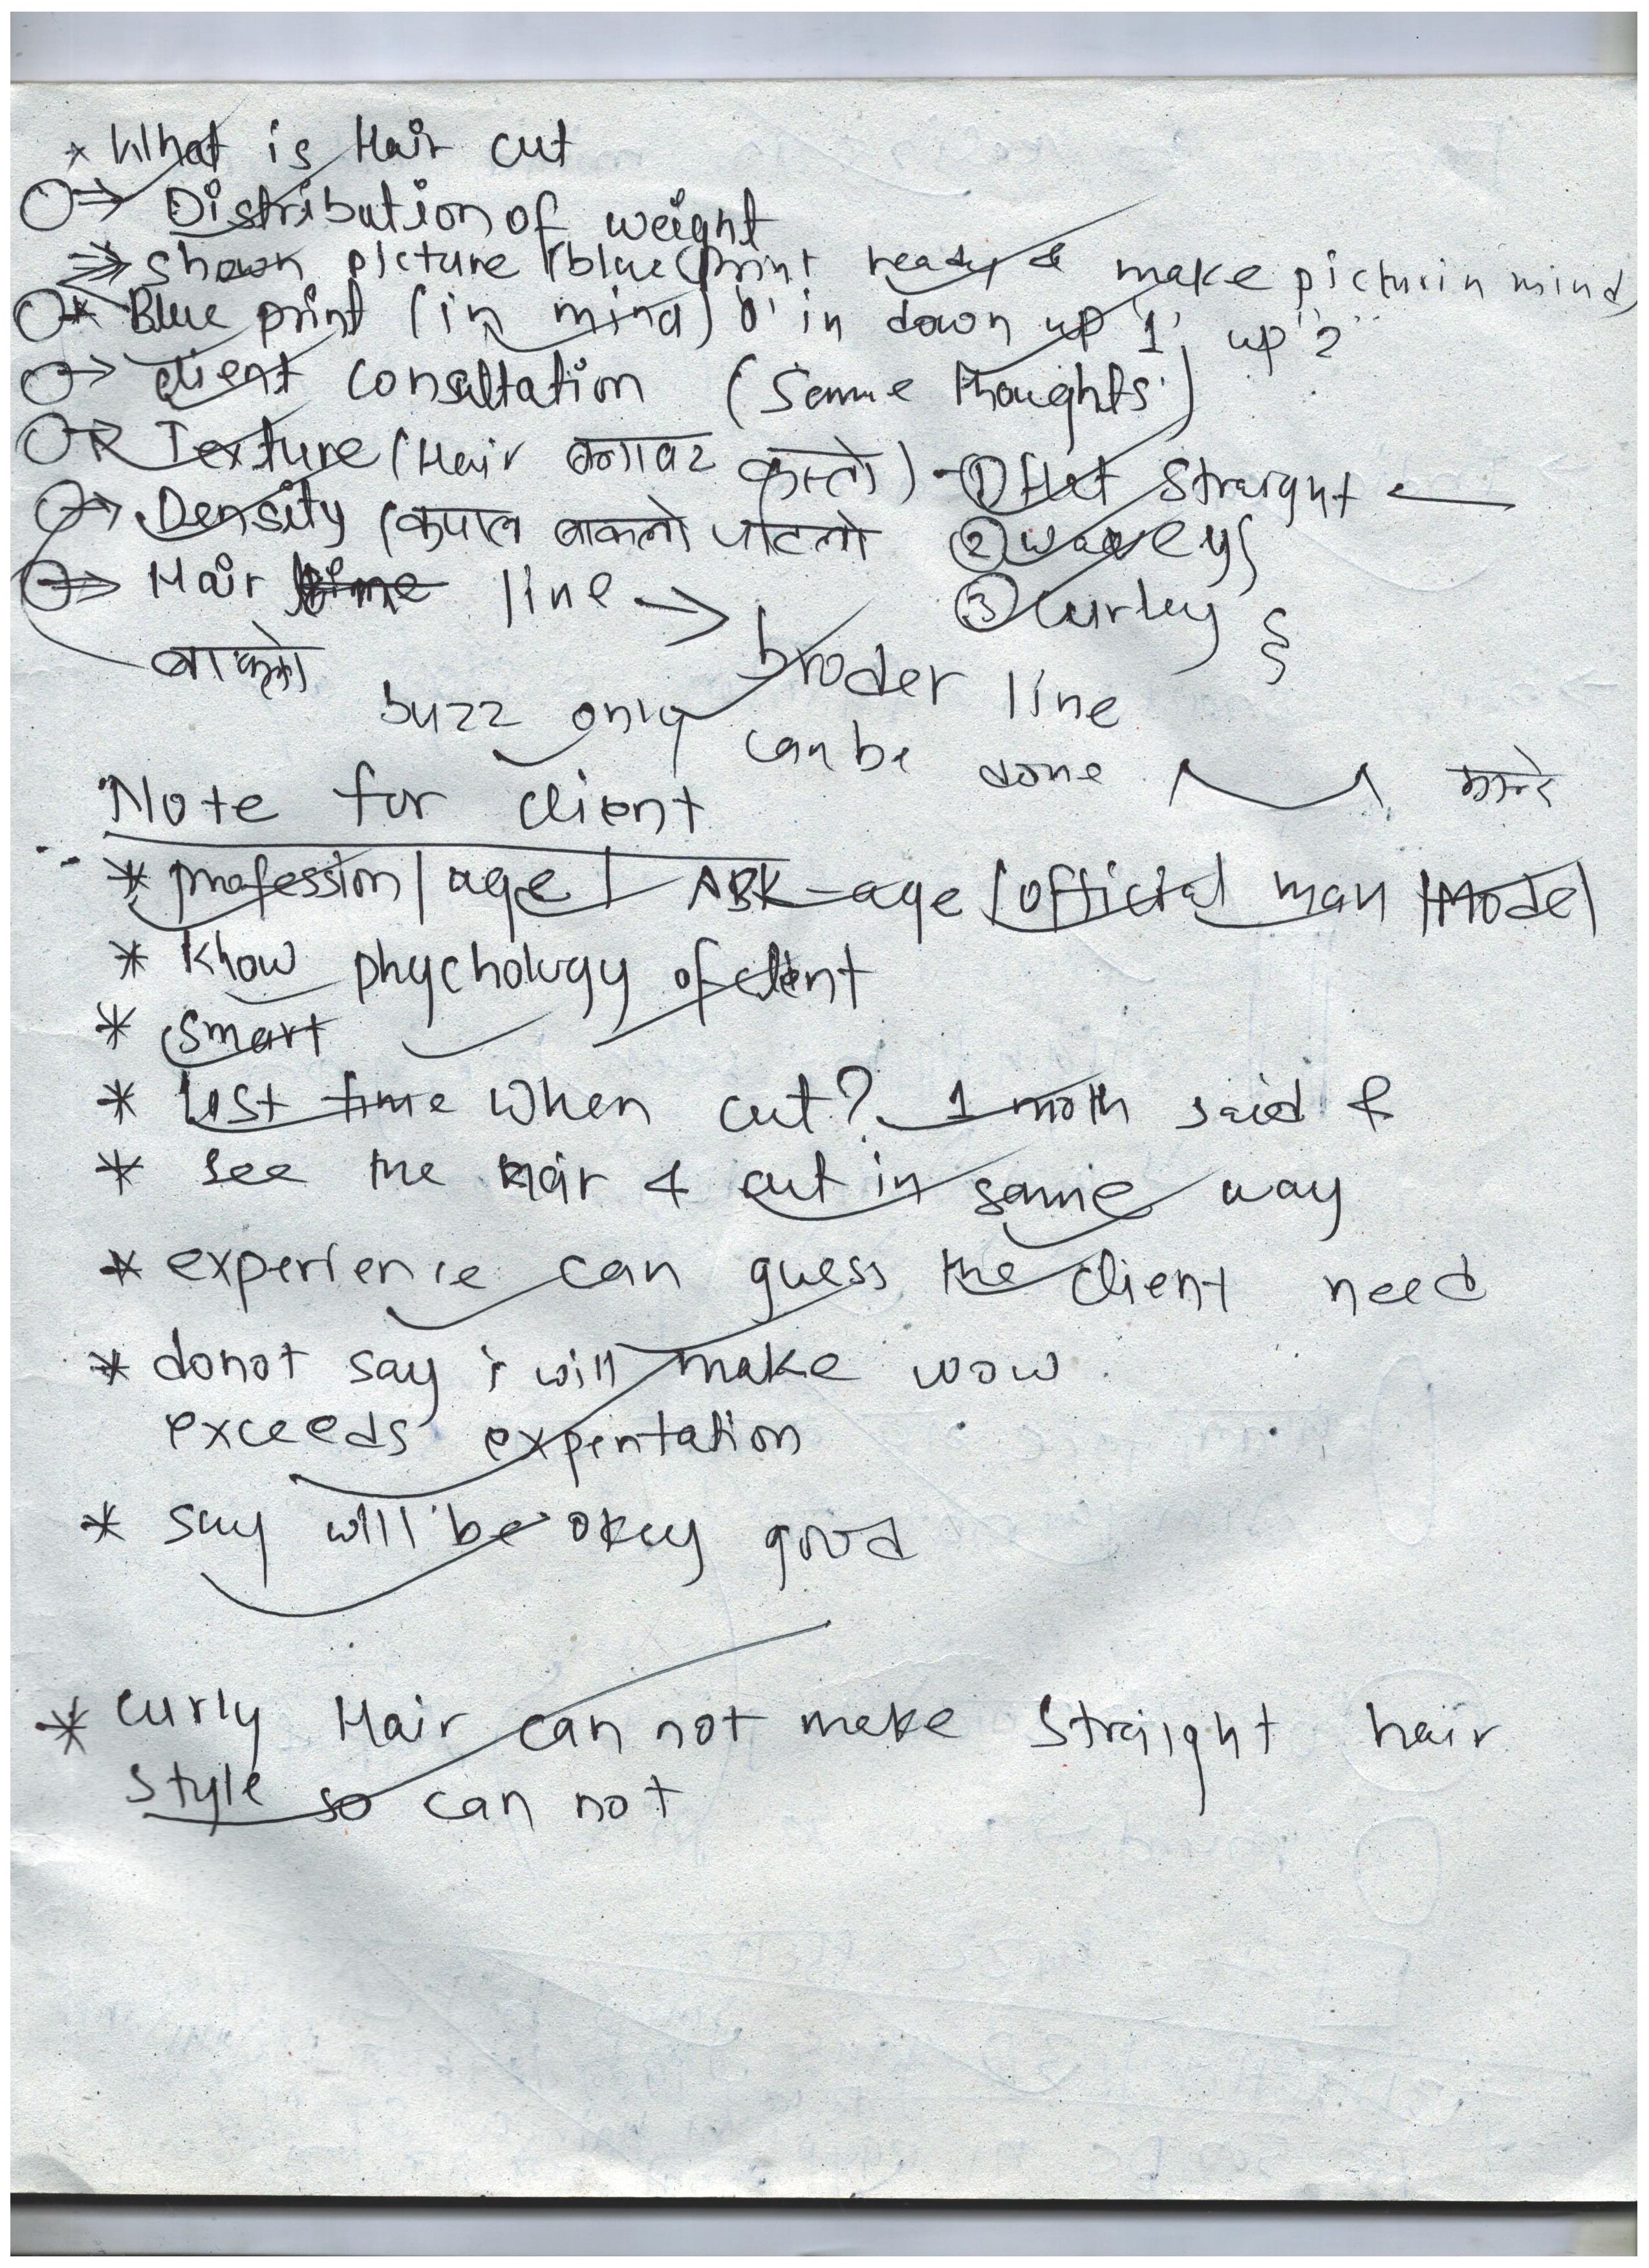 * What is Hair cut
→ Distribution of weight
⇒ shown picture (blue print ready & make pictur in mind)
* Blue print (in mind) '0' in down up '1', up '2'
→ client consaltation (Same thoughts)
→ Texture (Hair बनावट कस्तो) - ① flat straight ←
→ Density (कपाल बाक्लो पातलो ② wavey
→ Hair line → broder line ③ curley
बाक्लो
buzz only can be done
Note for client
* profession | age | ASK - age | official man | Model
* Know phychology of client
* smart
* last time when cut? 1 moth said &
* see the hair & cut in same way
* experience can guess the client need
* donot say i will make wow
exceeds expentation
* say will be okey good
* curly Hair can not make Straight hair
style so can not